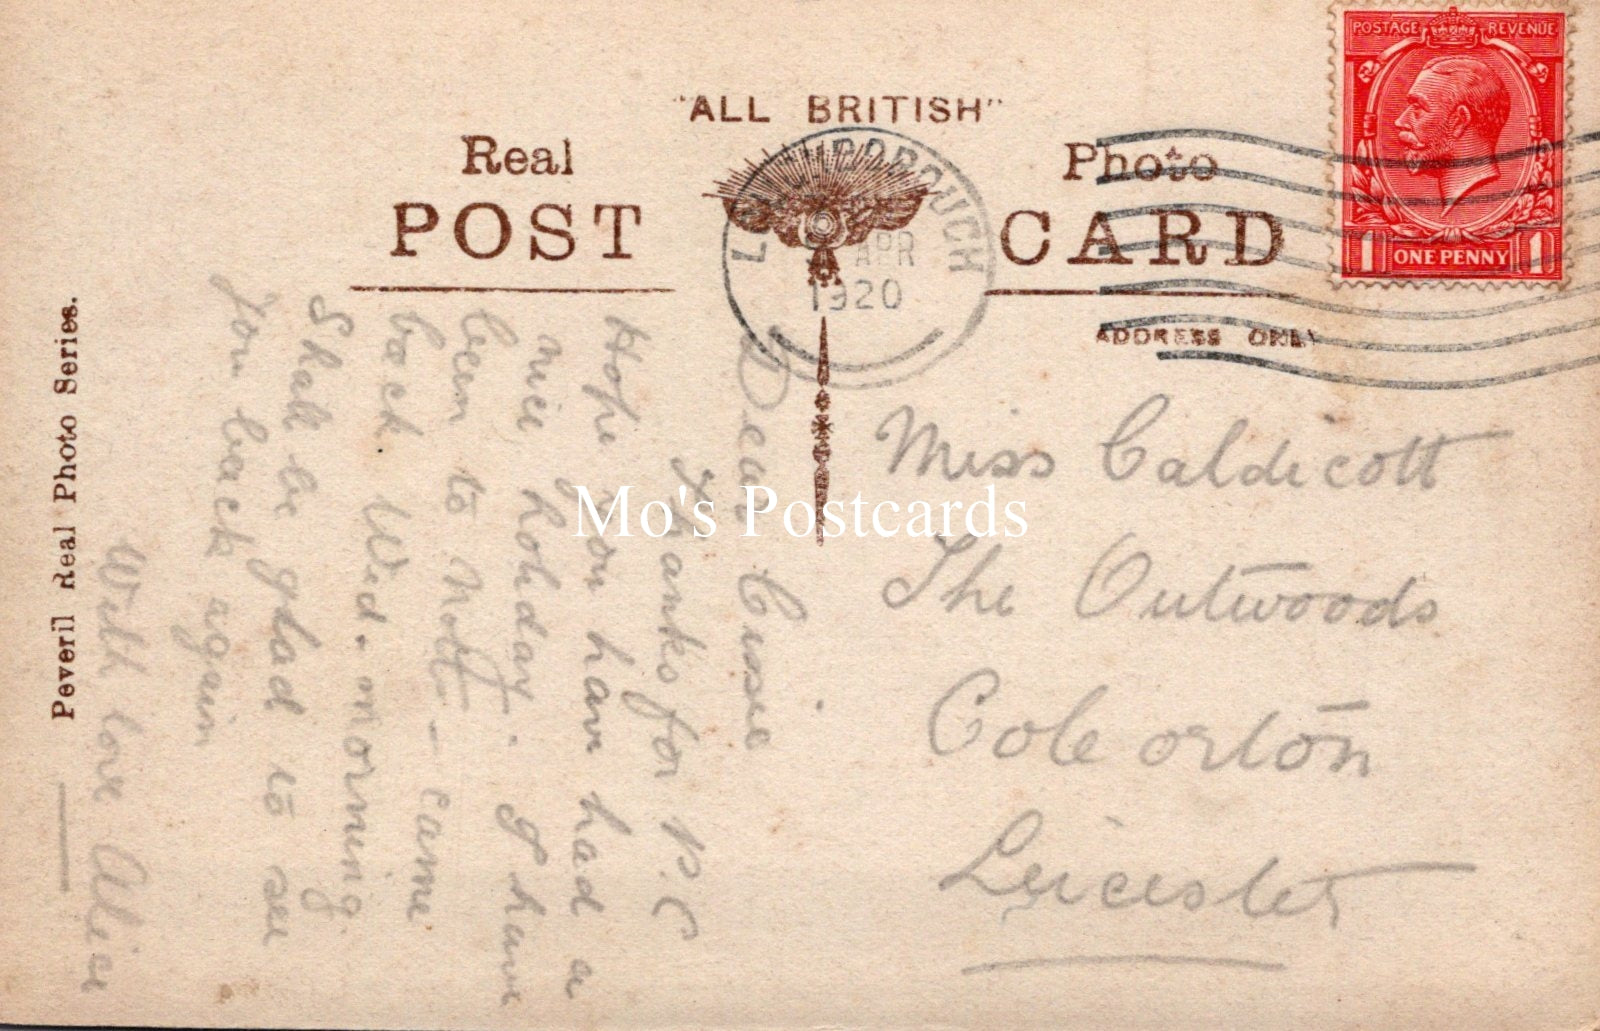 "ALL BRITISH"
Real Photo
POST CARD
ADDRESS ONLY
POSTAGE REVENUE
1 ONE PENNY 1
LOUGHBOROUGH
APR
1920
Peveril Real Photo Series.
Dear Cissie
Thanks for P.C
Hope you have had a
nice holiday. I have
been to Nott - came
back Wed. morning.
Shall be glad to see
you back again
With love Alice
Miss Caldicott
The Outwoods
Coleorton
Leicester
Mo's Postcards